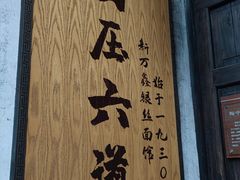 百压六道
始于一九三〇
新万鑫银丝面馆